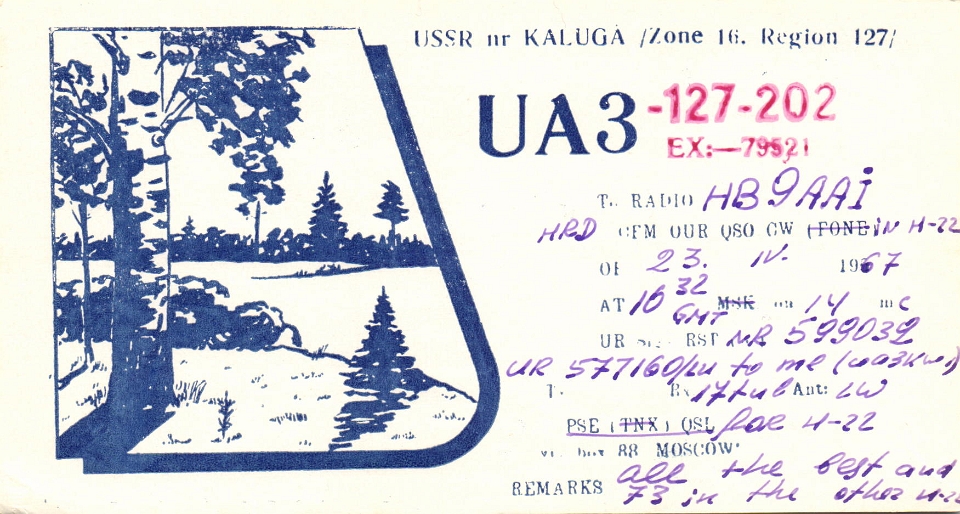 USSR nr KALUGA /Zone 16. Region 127/
UA3-127-202
EX:—79521
To RADIO HB9AAI
HRD CFM OUR QSO CW (FONE in H-22
OF 23. IV. 1967
AT 16 32 GMT MSK on 14 mc
UR RST NR 599039
UR 577160/nr to me (ua3kwi)
T. Rx 17tub Ant: LW
PSE (TNX) QSL for H-22
box 88 MOSCOW
REMARKS all the best and
73 in the other H-22